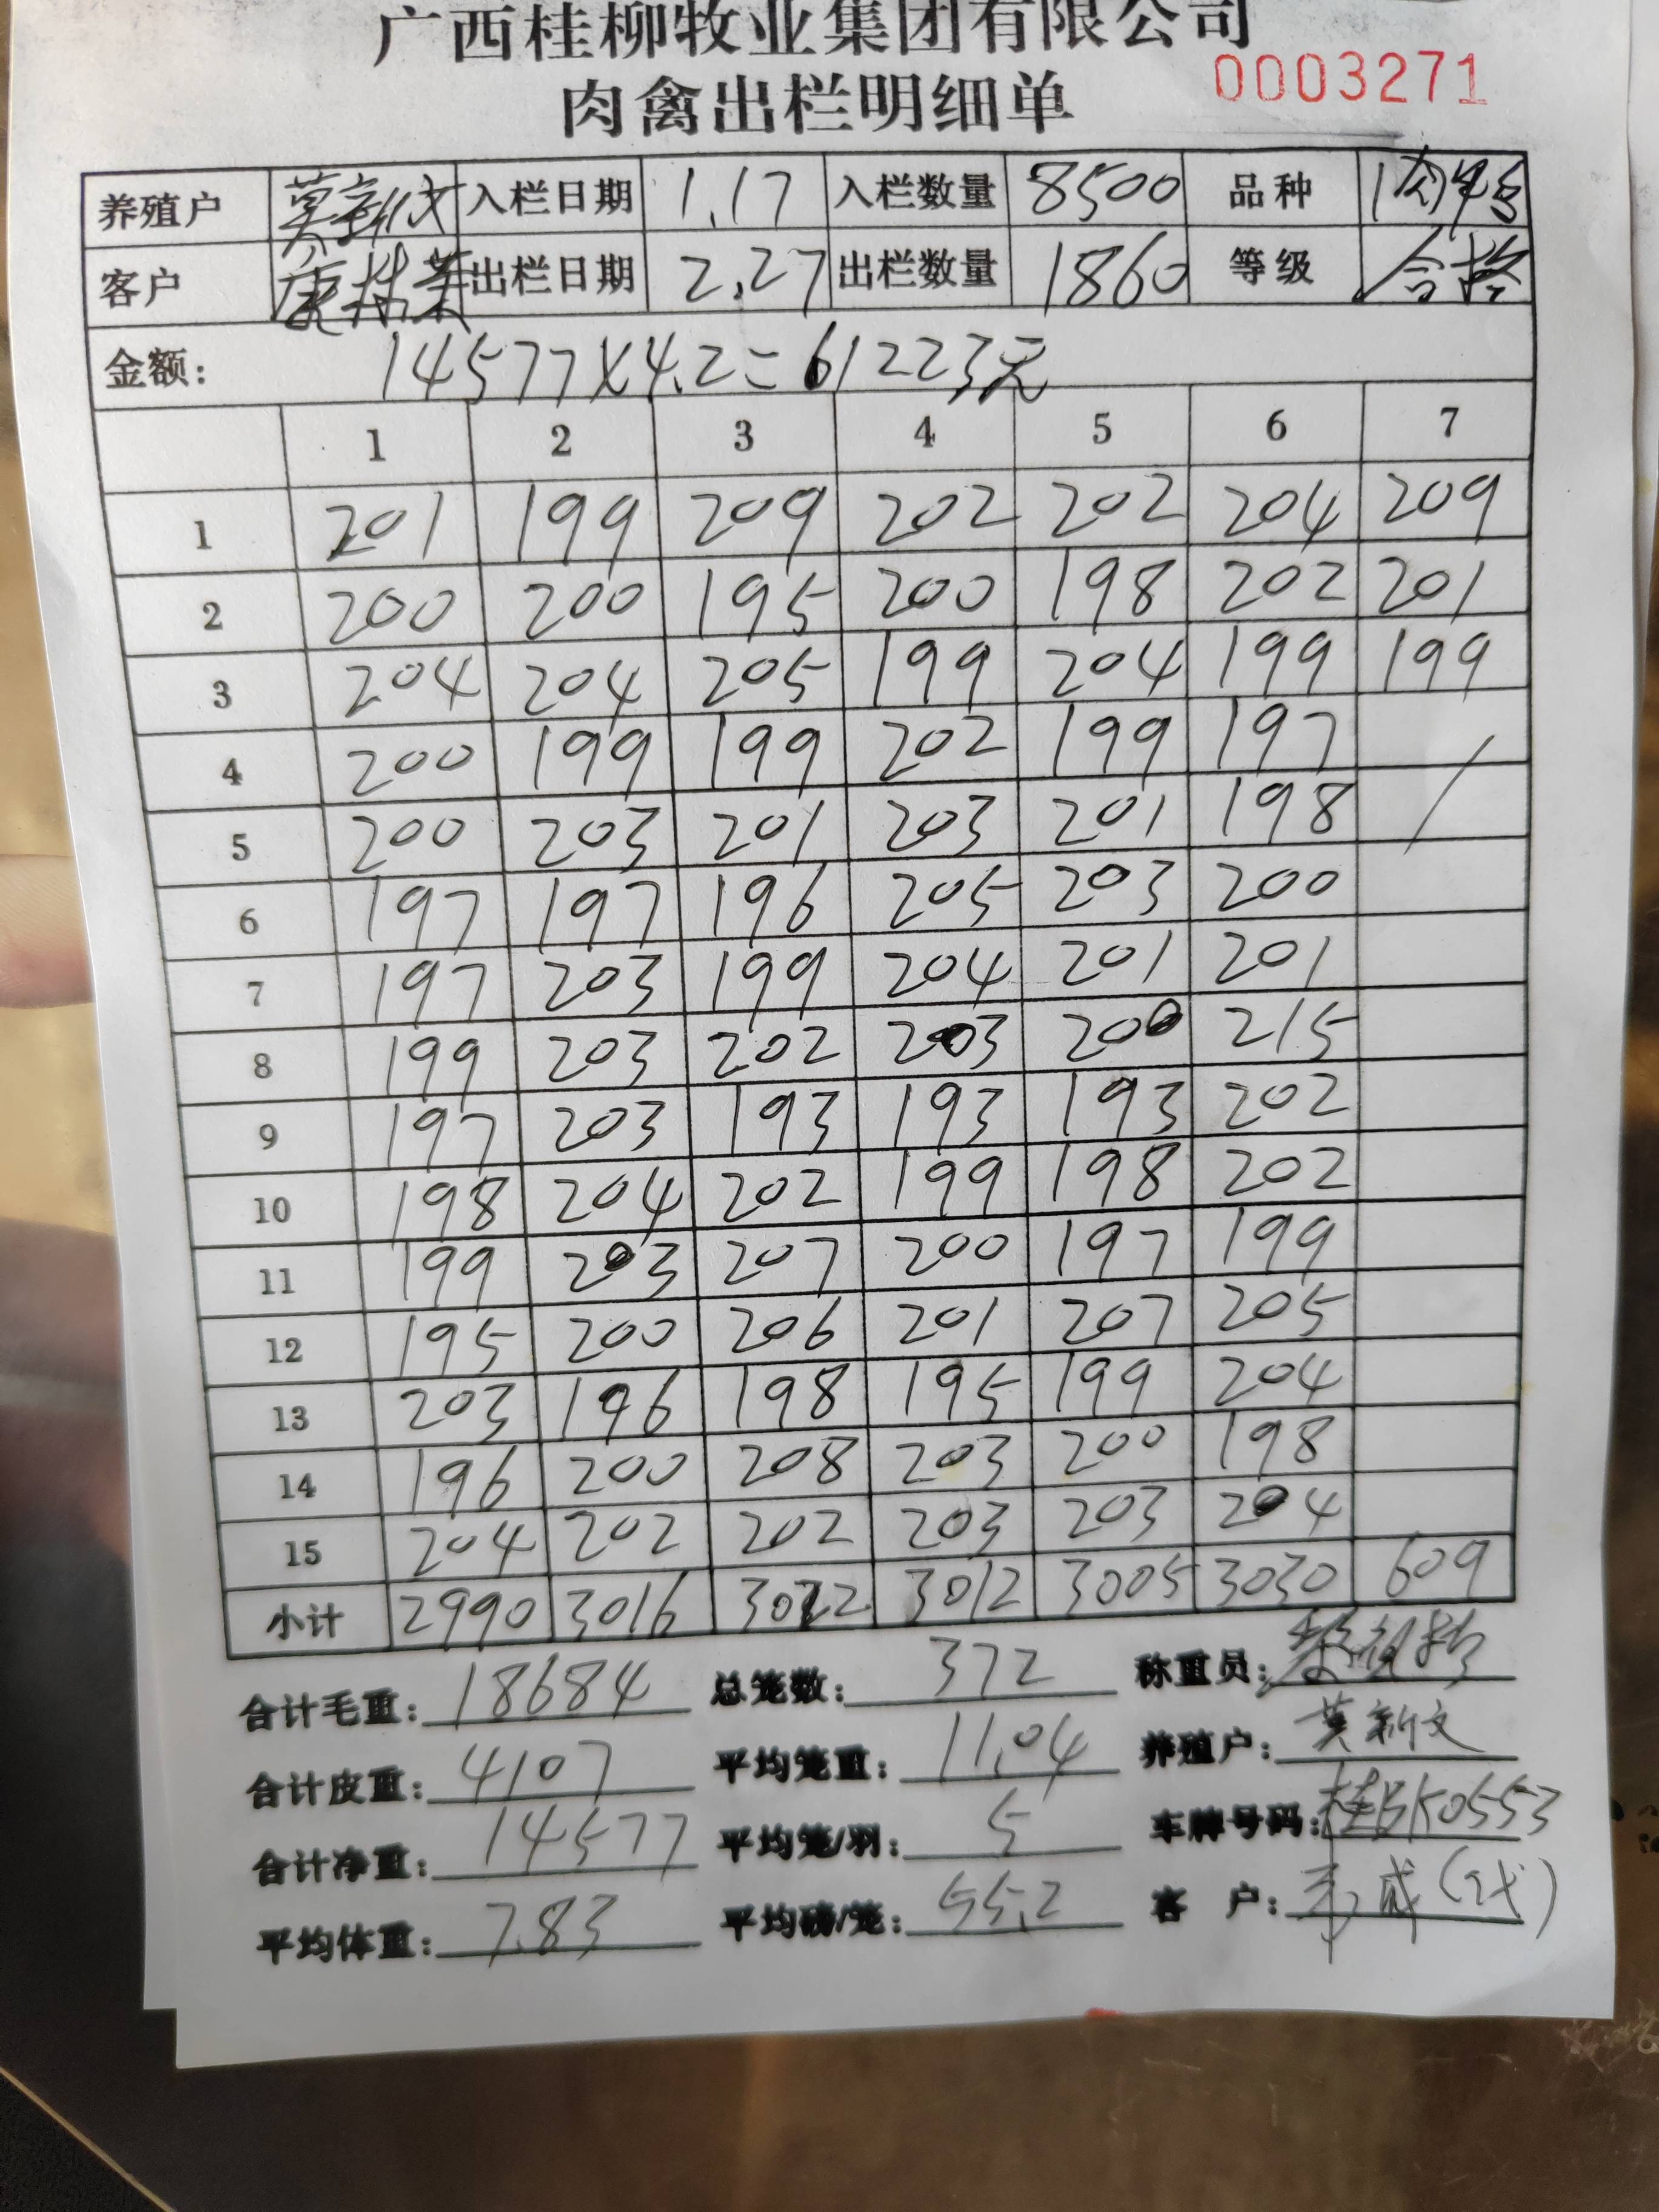 广西桂柳牧业集团有限公司
肉禽出栏明细单 0003271
养殖户 莫新文 入栏日期 1.17 入栏数量 8500 品种
客户 出栏日期 2.27 出栏数量 1860 等级 合格
金额: 14577×4.2=61223元
1 2 3 4 5 6 7
1 201 199 209 202 202 204 209
2 200 200 195 200 198 202 201
3 204 204 205 199 204 199 199
4 200 199 199 202 199 197
5 200 203 201 203 201 198
6 197 197 196 205 203 200
7 197 203 199 204 201 201
8 199 203 202 203 200 215
9 197 203 193 193 193 202
10 198 204 202 199 198 202
11 199 203 207 200 197 199
12 195 200 206 201 207 205
13 203 196 198 195 199 204
14 196 200 208 203 200 198
15 204 202 202 203 203 204
小计 2990 3016 3022 3012 3005 3030 609
合计毛重: 18684 总笼数: 372 称重员:
合计皮重: 4107 平均笼重: 11.04 养殖户: 莫新文
合计净重: 14577 平均笼/羽: 5 车牌号码: 桂BK0553
平均体重: 7.83 平均磅/笼: 55.2 客 户: (代)